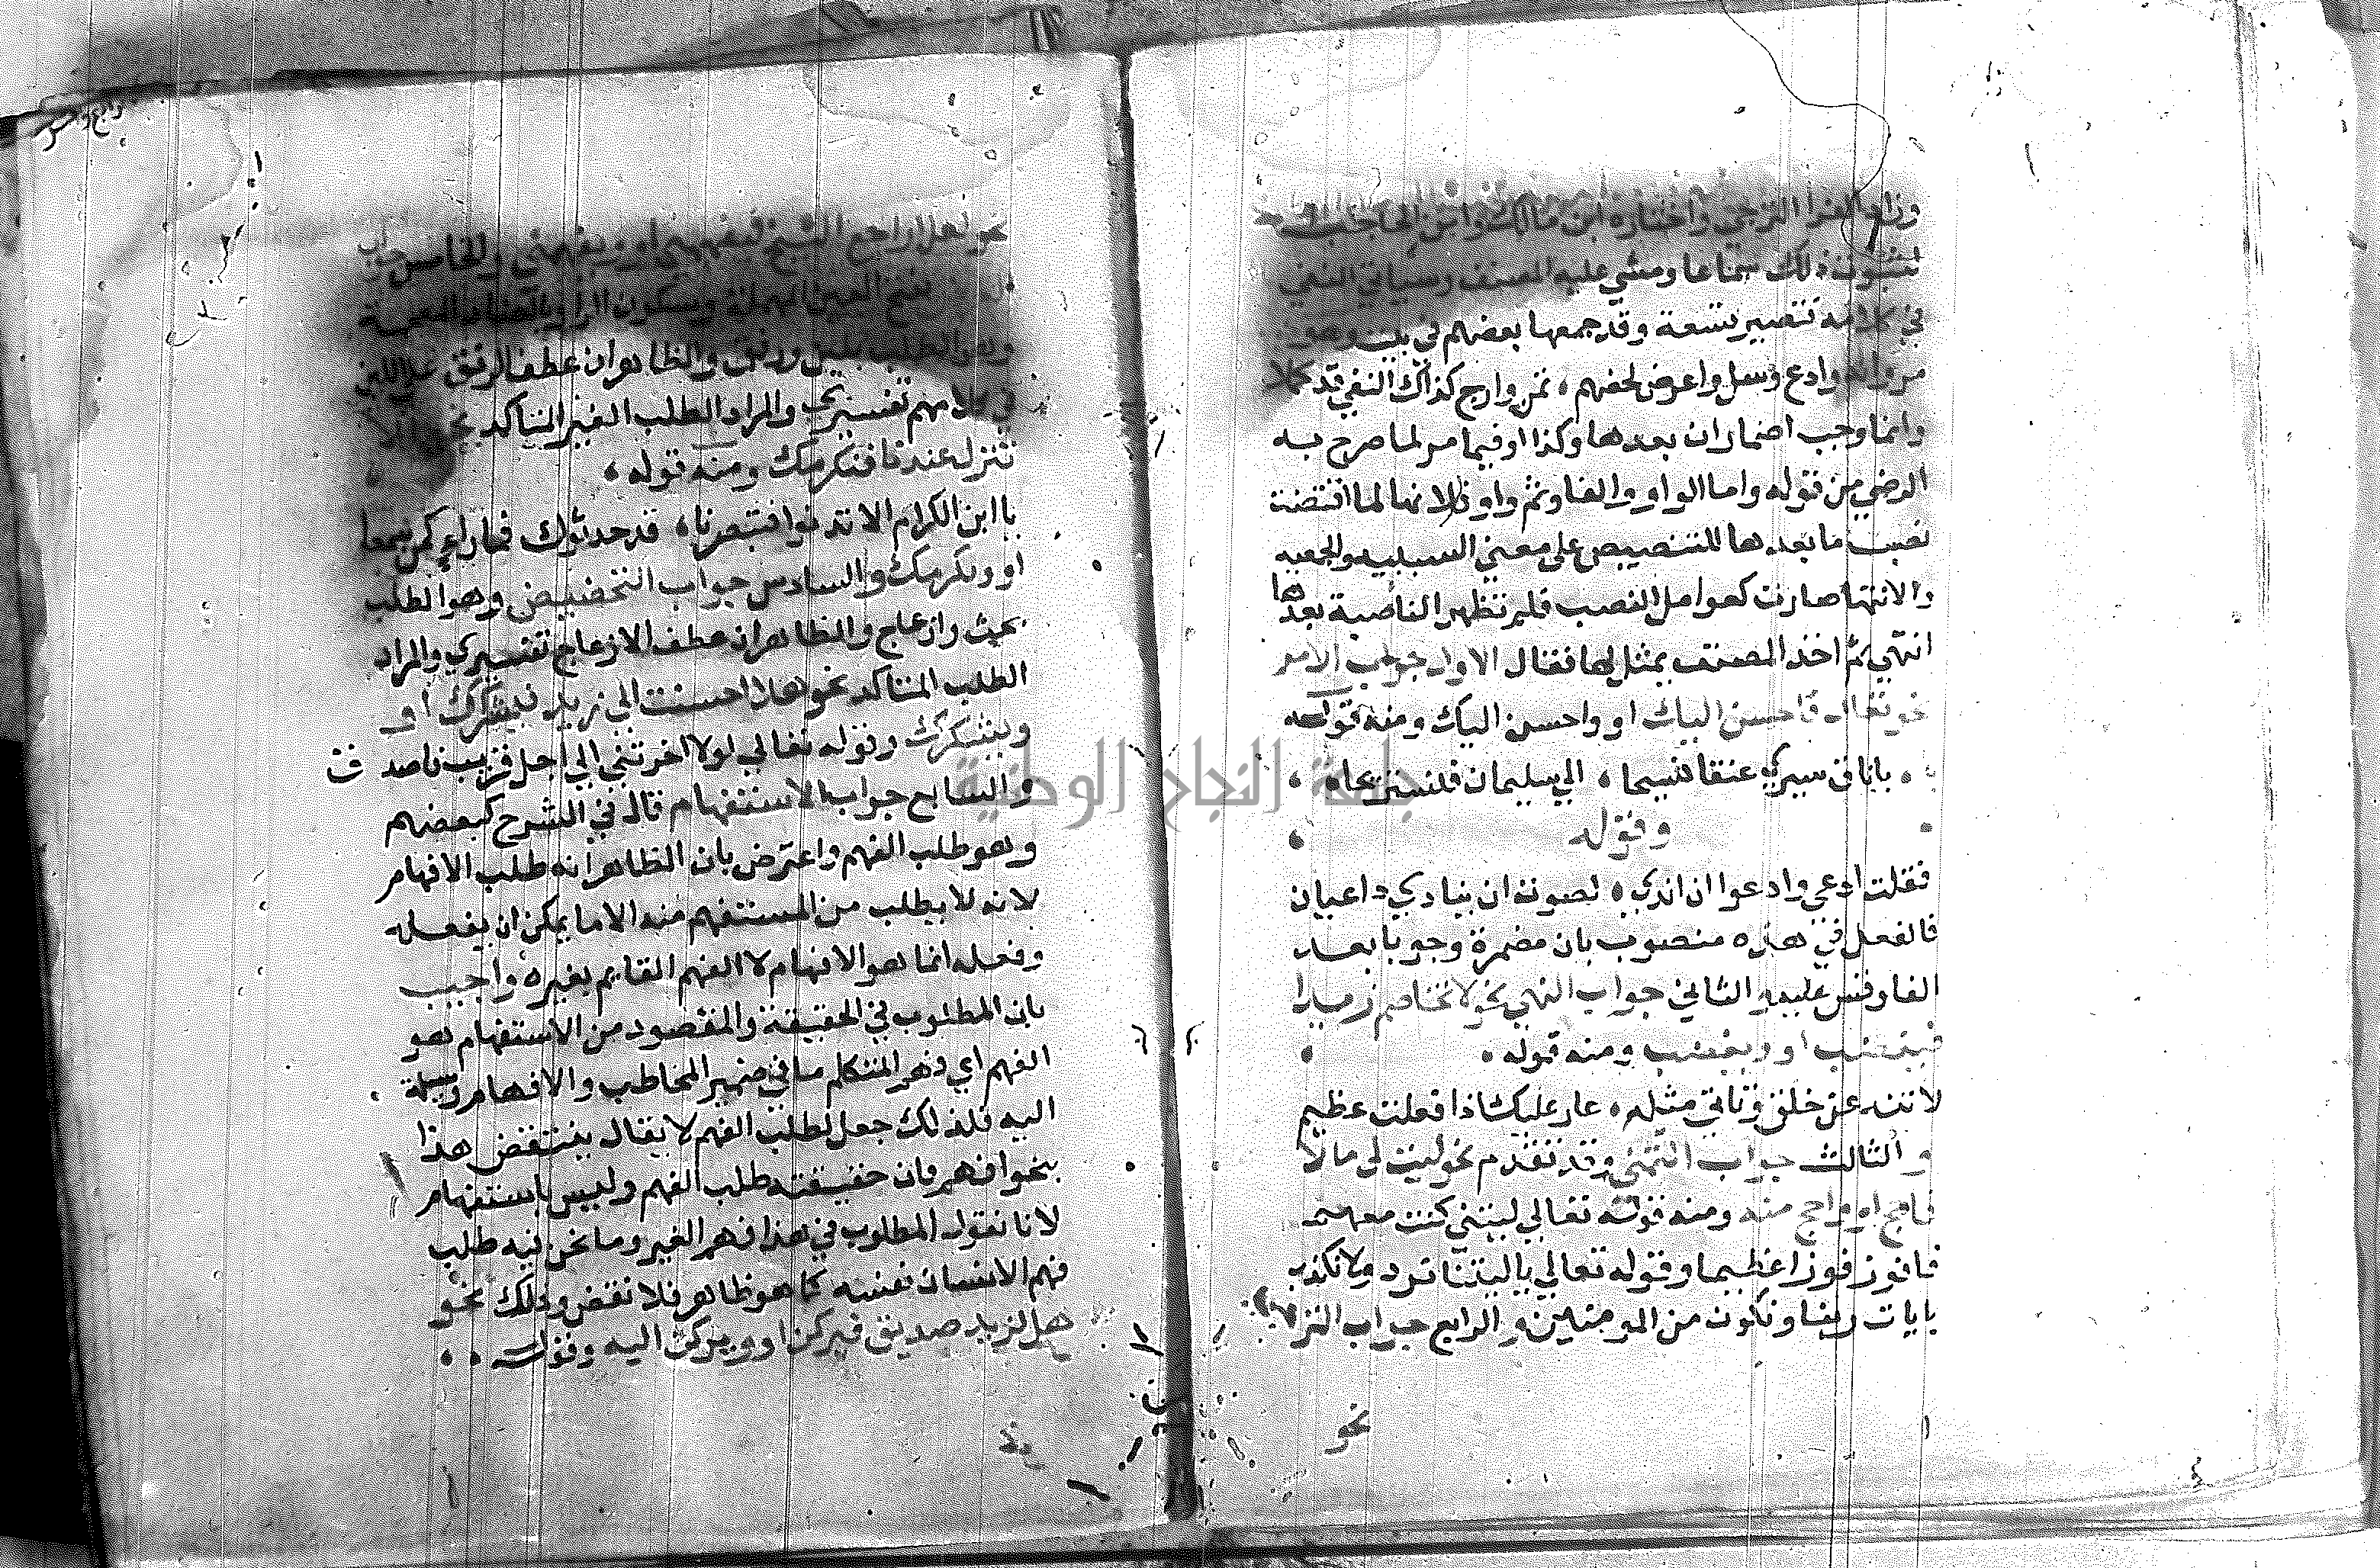 وزاد الفرا الترجي واختاره ابن مالك وابن الحاجب
لثبوت ذلك سماعا ومشي عليه المصنف وسياتي النفي
في كلامه تتصير تسعة وقد جمعها بعضهم في بيت وهو
مر وانه وادع وسل واعرض لحضهم ، تمن وارج كذاك النفي قد كملا
وانما وجب اضمار ان بعدها وكذا او فيما مر لما صرح به
الرضي من قوله واما الواو والفا وثم واو فلانها لما اقتضت
نصب ما بعدها للتنصيص على معنى السببيه والجعيه
والانتها صارت كعوامل النصب فلم تظهر الناصبة بعدها
انتهي ثم اخذ المصنف يمثل لها فقال الاول جواب الامر
نحو تعال فاحسن اليك او واحسن اليك ومنه قوله
يا ناق سيري عنقا فسيحا ، الي سليمان فنستريحا ،
وقوله
فقلت ادعي وادعوا ان اندي ، لصوت ان ينادي داعيان
فالفعل في هذه منصوب بان مضمرة وجوبا بعد
الفا وقس عليه والثاني جواب النهي نحو لا تخاصم زيدا
فيغضب او ويغضب ومنه قوله ،
لا تنه عن خلق وتاتي مثله ، عار عليك اذا فعلت عظيم
والثالث جواب التمني وقد تقدم نحو ليت لي مالا
فاحج او واحج منه ومنه قوله تعالي ليتني كنت معهم
فافوز فوزا عظيما وقوله تعالي يا ليتنا نرد ولا نكذب
بايات ربنا ونكون من المومنين والرابع جواب الترجي
نحو
نحو لعل اراجع الشيخ فيفهمني او ويفهمني والخامس جواب
بفتح العين المهملة وسكون الرا وبالضاد المعجمة
وهو الطلب بلين ورفق والظاهر ان عطف الرفق علي اللين
في كلامهم تفسيري والمراد الطلب الغير المتاكد نحو الا
تنزل عندنا فنكرمك ومنه قوله ،
يا ابن الكرام الا تدنوا فتبصر ما ، قد حدثوك فما راء كمن سمعا
او ونكرمك والسادس جواب التحضيض وهو الطلب
بحث وازعاج والظاهر ان عطف الازعاج تفسيري والمراد
الطلب المتاكد نحو هلا احسنت الي زيد فيشكرك او
ويشكرك وقوله تعالي لولا اخرتني الي اجل قريب فاصدق
والسابع جواب الاستفهام قال في الشرح كبعضهم
وهو طلب الفهم واعترض بان الظاهر انه طلب الافهام
لانه لا يطلب من المستفهم منه الا ما يمكن ان يفعله
وفعله انما هو الافهام لا الفهم القايم بغيره واجيب
بان المطلوب في الحقيقة والمقصود من الاستفهام هو
الفهم اي فهم المتكلم ما في ضمير المخاطب والافهام وسيلة
اليه فلذلك جعل لطلب الفهم لا يقال ينتقض هذا
بنحو افهم فان حقيقته طلب الفهم وليس باستفهام
لانا نقول المطلوب في هذا فهم الغير وما نحن فيه طلب
فهم الانسان نفسه كما هو ظاهر فلا نقض وذلك نحو
هل لزيد صديق فيركن او ويركن اليه وقوله
جامعة النجاح الوطنية